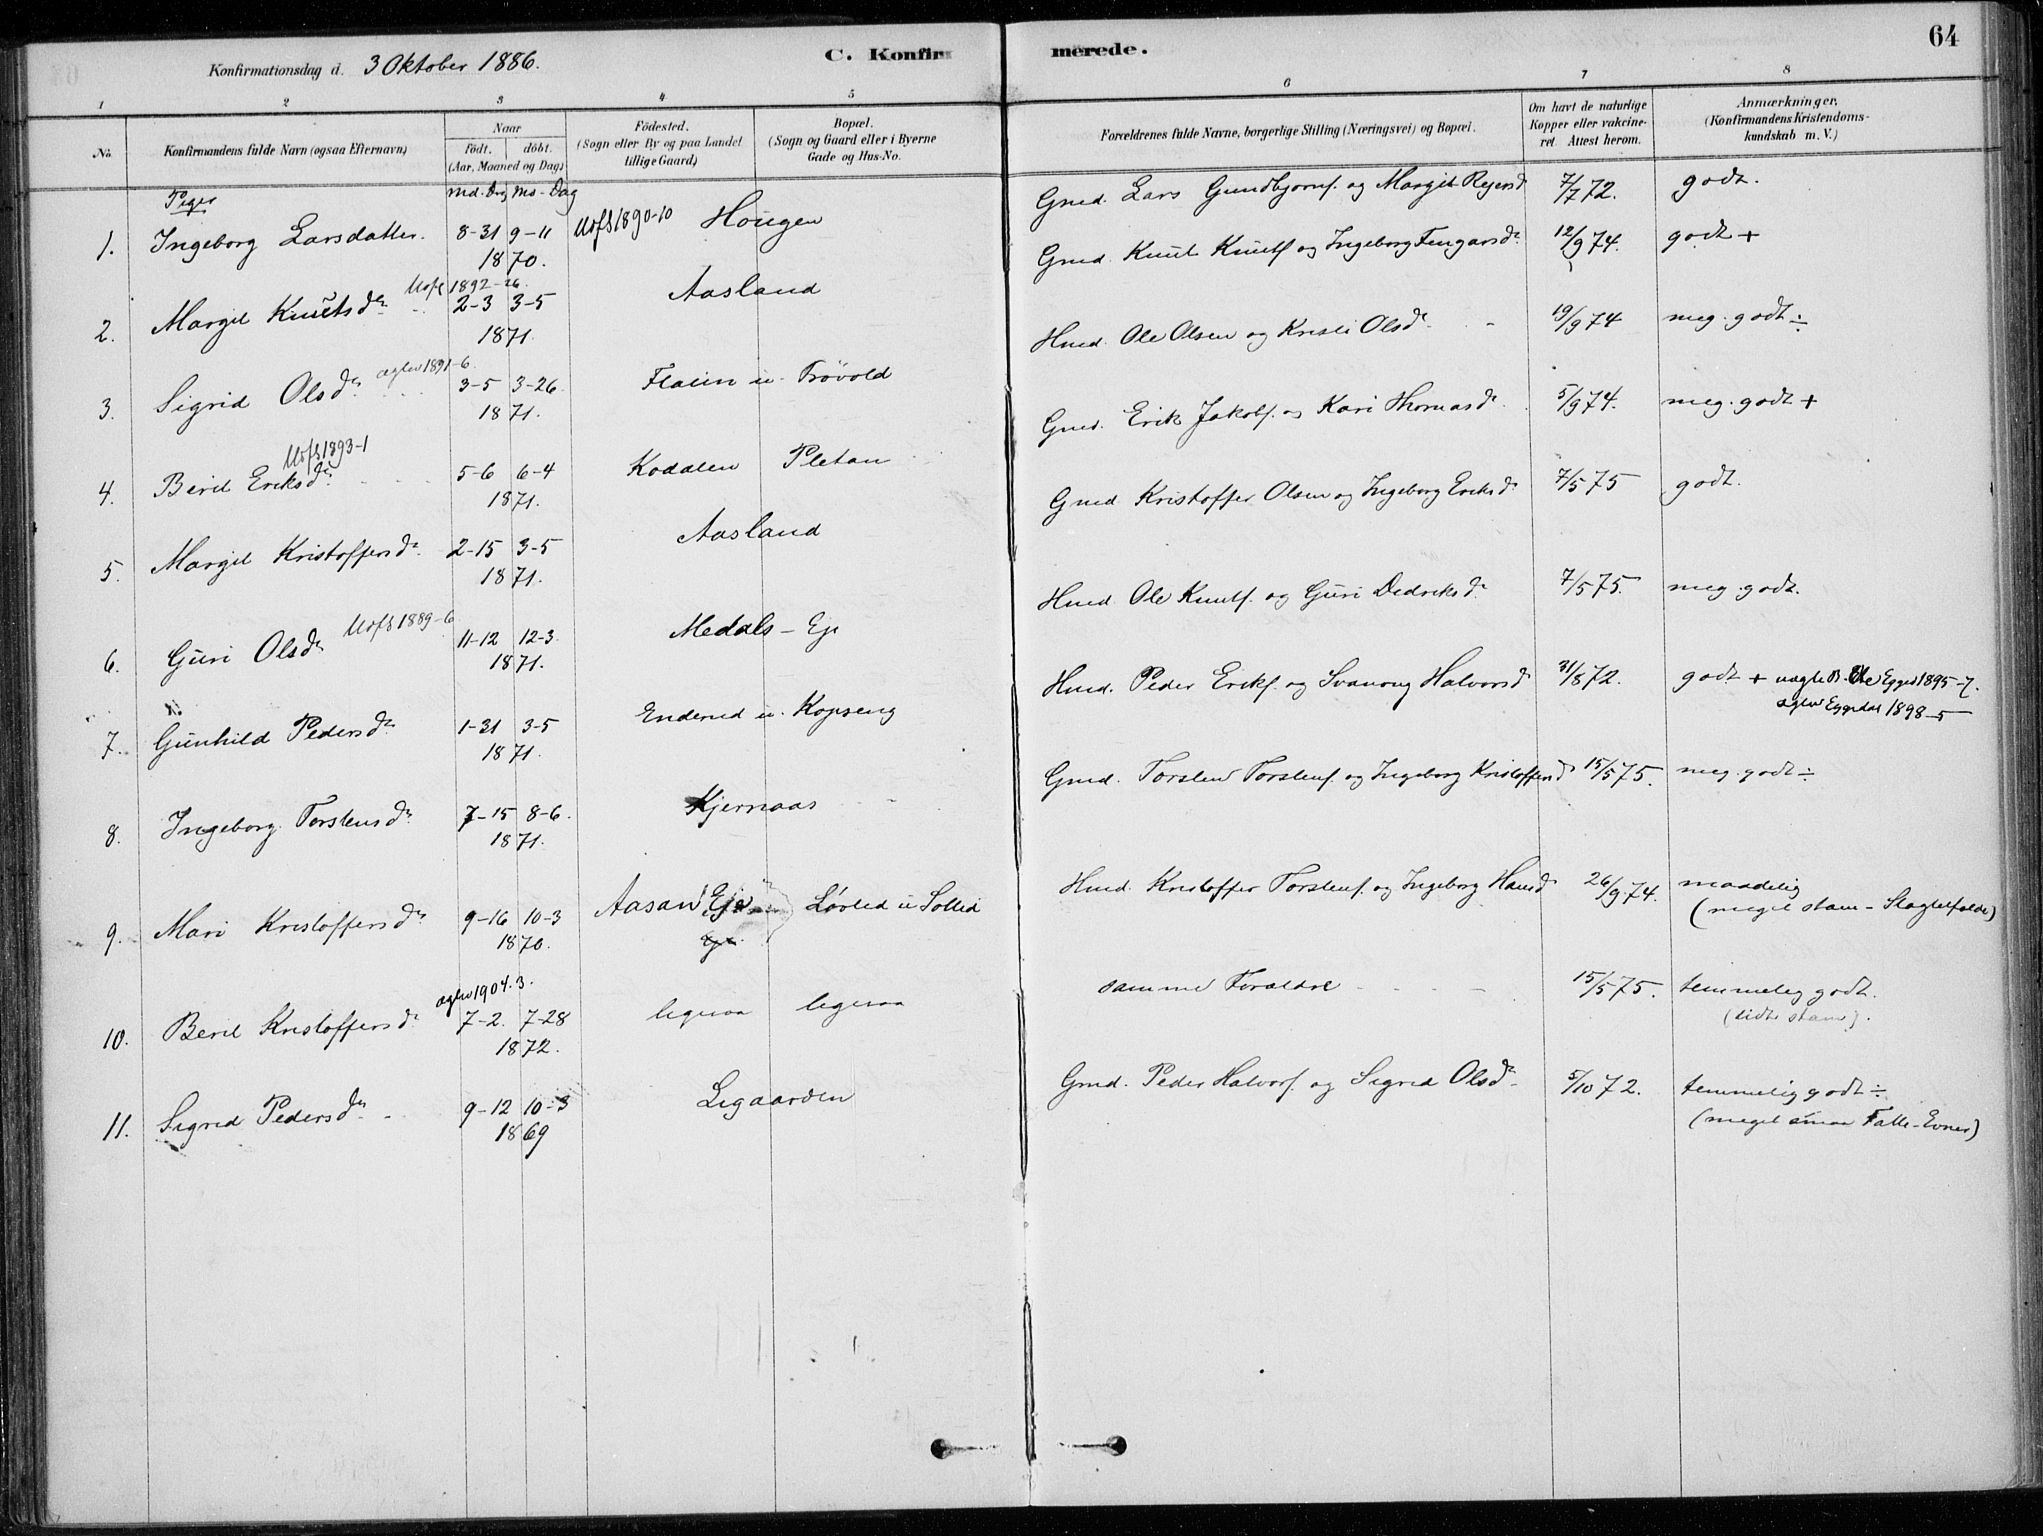 64
Konfirmationsdag d. 3 Oktober 1886. C. Konfirmerede.
1 2 3 4 5 6 7 8
No. Konfirmandens fulde Navn (ogsaa Efternavn) Naar Födt. döbt. (Aar, Maaned og Dag) Födested. (Sogn eller By og paa Landet tillige Gaard) Bopæl. (Sogn og Gaard eller i Byerne Gade og Hus-No. Forældrenes fulde Navne, borgerlige Stilling (Næringsvei) og Bopæl. Om havt de naturlige Kopper eller vakcineret. Attest herom. Anmærkninger. (Konfirmandens Kristendomskundskab m. V.)
Piger Md. Dag Md - Dag
1. Ingeborg Larsdatter. 8-31 9-11 Uofs 1890-10 Hougen Gmd. Lars Gundbjornf. og Margit Rejersd 7/7 72. godt.
1870.
Uofs 1892-26.
2. Margit Knutsdr 2-3 3-5 Aasland Gmd. Knut Knutf og Ingeborg Fingarsdr. 12/9 74. godt +
1871.
ægtev 1891-6
3. Sigrid Olsdr 3-5 3-26 Flatin u. Trövold Hmd. Ole Olsen og Kristi Olsdr 19/9 74 meg. godt ÷
1871.
Uofs 1893-1
4. Berit Eriksdr. 5-6 6-4 Kodalen Pletan Gmd. Erik Jakobf. og Kari Thomasdr. 5/9 74. meg. godt +
1871.
5. Margit Kristoffersdr. 2-15 3-5 Aasland Gmd Kristoffer Olsen og Ingeborg Eriksdr 7/5 75 godt.
1871.
6. Guri Olsdr Uofs 1889-6 11-12 12-3 Medals - Eje Hmd. Ole Knutf. og Guri Dedriksdr 7/5 75. meg. godt.
1871.
7. Gunhild Pedersdr 1-31 3-5 Enderud u. Kopseng Hmd. Peder Erikf. og Svanoug Halvorsdr 31/8 72. godt + uægte B. Ole Eggedal 1895-7.
ægtev Eggedal 1898-5
1871.
8. Ingeborg Torstensdr. 7-15 8-6. Kjernaas Gmd. Torsten Torstenf. og Ingeborg Kristoffersdr 15/5 75. meg. godt ÷
1871.
9. Mari Kristoffersdr 9-16 10-3 Aasan Eje Løvlid u Sollid Hmd. Kristoffer Torstenf. og Ingeborg Hansdr 26/9 74. maadelig
1870. Eje (meget stam -
ægtev 1904. 3.
10. Berit Kristoffersdr 7-2. 7-28 ligesaa ligesaa samme Forældre 15/5 75. temmelig godt.
1872. (lidt stam).
11. Sigrid Pedersdr 9-12 10-3 Ligaarden Gmd. Peder Halvorf. og Sigrid Olsdr 5/10 72. temmelig godt ÷
1869 (meget smaa Fatte-Evner)